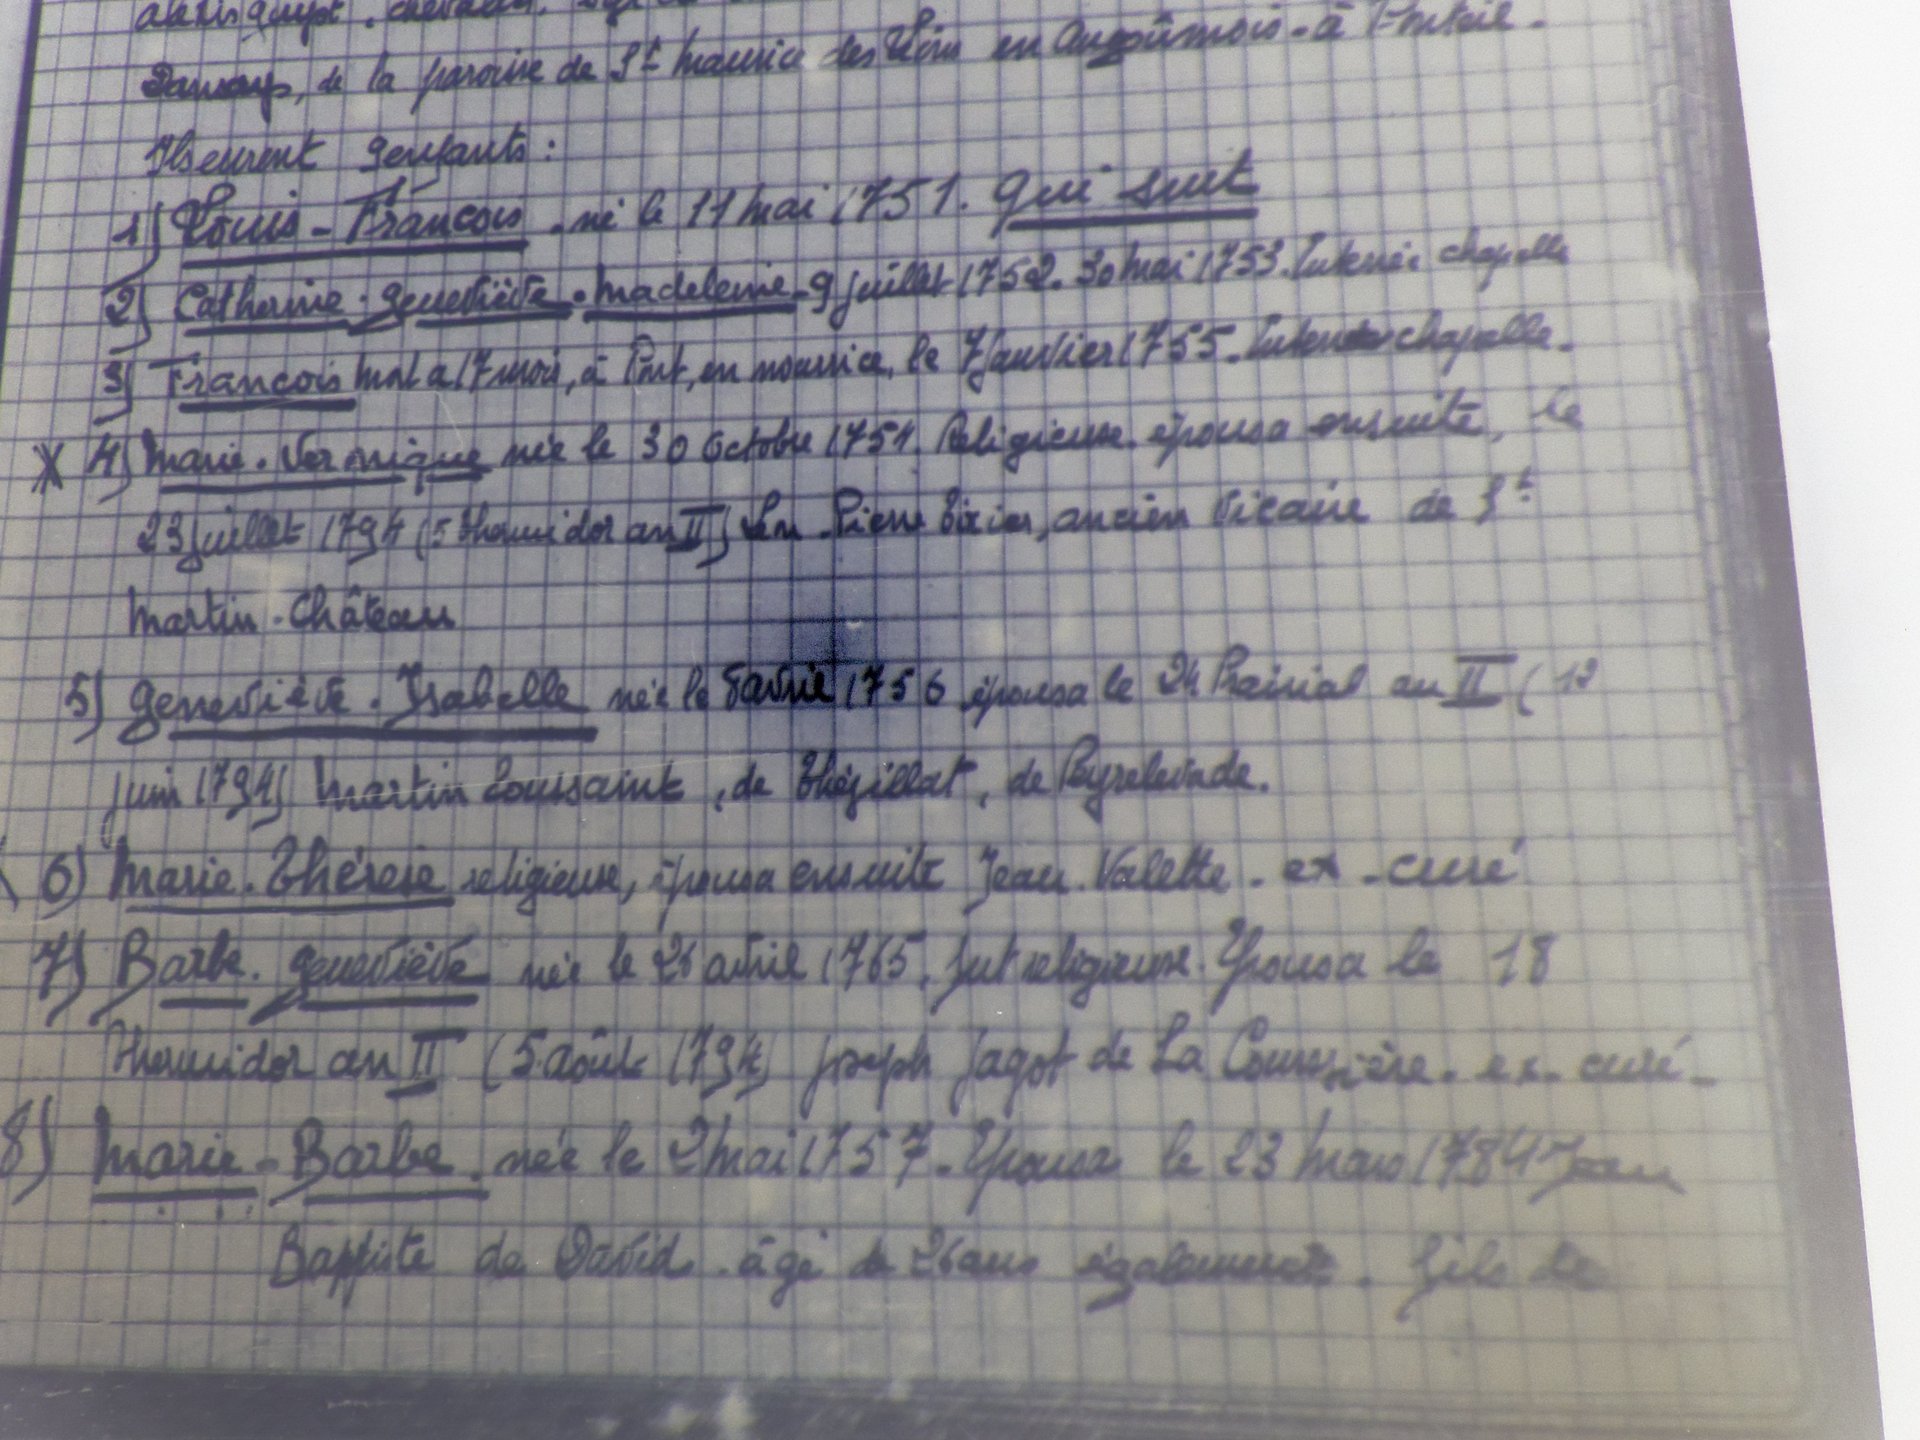 de la paroisse de St Maurice des Lions en Angoûmois - à Ponteil -
Ils eurent 9 enfants :
1) Louis - François . né le 11 mai 1751. Qui suit
2) Catherine - Geneviève - Madeleine - 9 juillet 1752. 30 mai 1753. Enterrée chapelle
3) François mort à 17 mois, à Pont, en nourrice, le 7 Janvier 1755. chapelle.
X 4) Marie - Véronique née le 30 Octobre 1754. Religieuse. épousa ensuite, le
23 juillet 1794 (5 thermidor an II) Pierre Tixier, ancien Vicaire de St
Martin - Château
5) Geneviève - Isabelle née le avril 1756 épousa le 24 Prairial an II (12
juin 1794) Martin Toussaint, de Thézillat, de Peyrelevade.
6) Marie - Thérèse religieuse, épousa ensuite Jean Valette - ex - curé
7) Barbe - Geneviève née le avril 1765. fut religieuse. Epousa le 18
thermidor an II (5 Août 1794) joseph Jagot de La Coussière - ex - curé -
8) Marie - Barbe . née le 2 mai 1757. Epousa le 23 mars 1784 Jean
Baptiste de David . âgé de 26 ans également . fils de